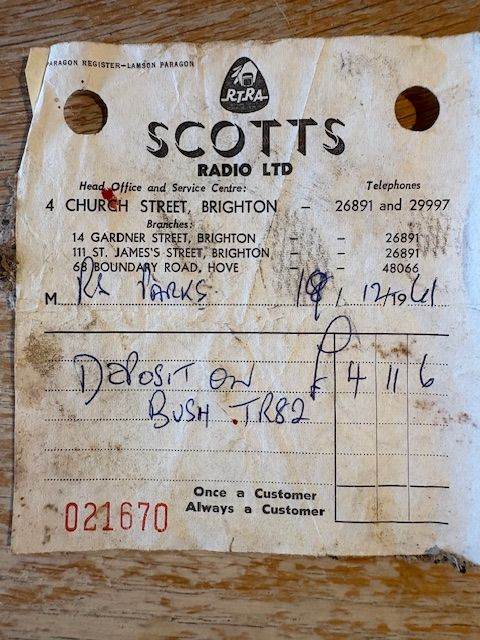 PARAGON REGISTER—LAMSON PARAGON
R.T.R.A.
SCOTTS
RADIO LTD
Head Office and Service Centre: Telephones
4 CHURCH STREET, BRIGHTON – 26891 and 29997
Branches:
14 GARDNER STREET, BRIGHTON – – 26891
111 ST. JAMES'S STREET, BRIGHTON – – 26891
68 BOUNDARY ROAD, HOVE – – 48066
M PARKS 12/1961
DEPOSIT ON £ 4 11 6
BUSH TR82
Once a Customer
Always a Customer
021670